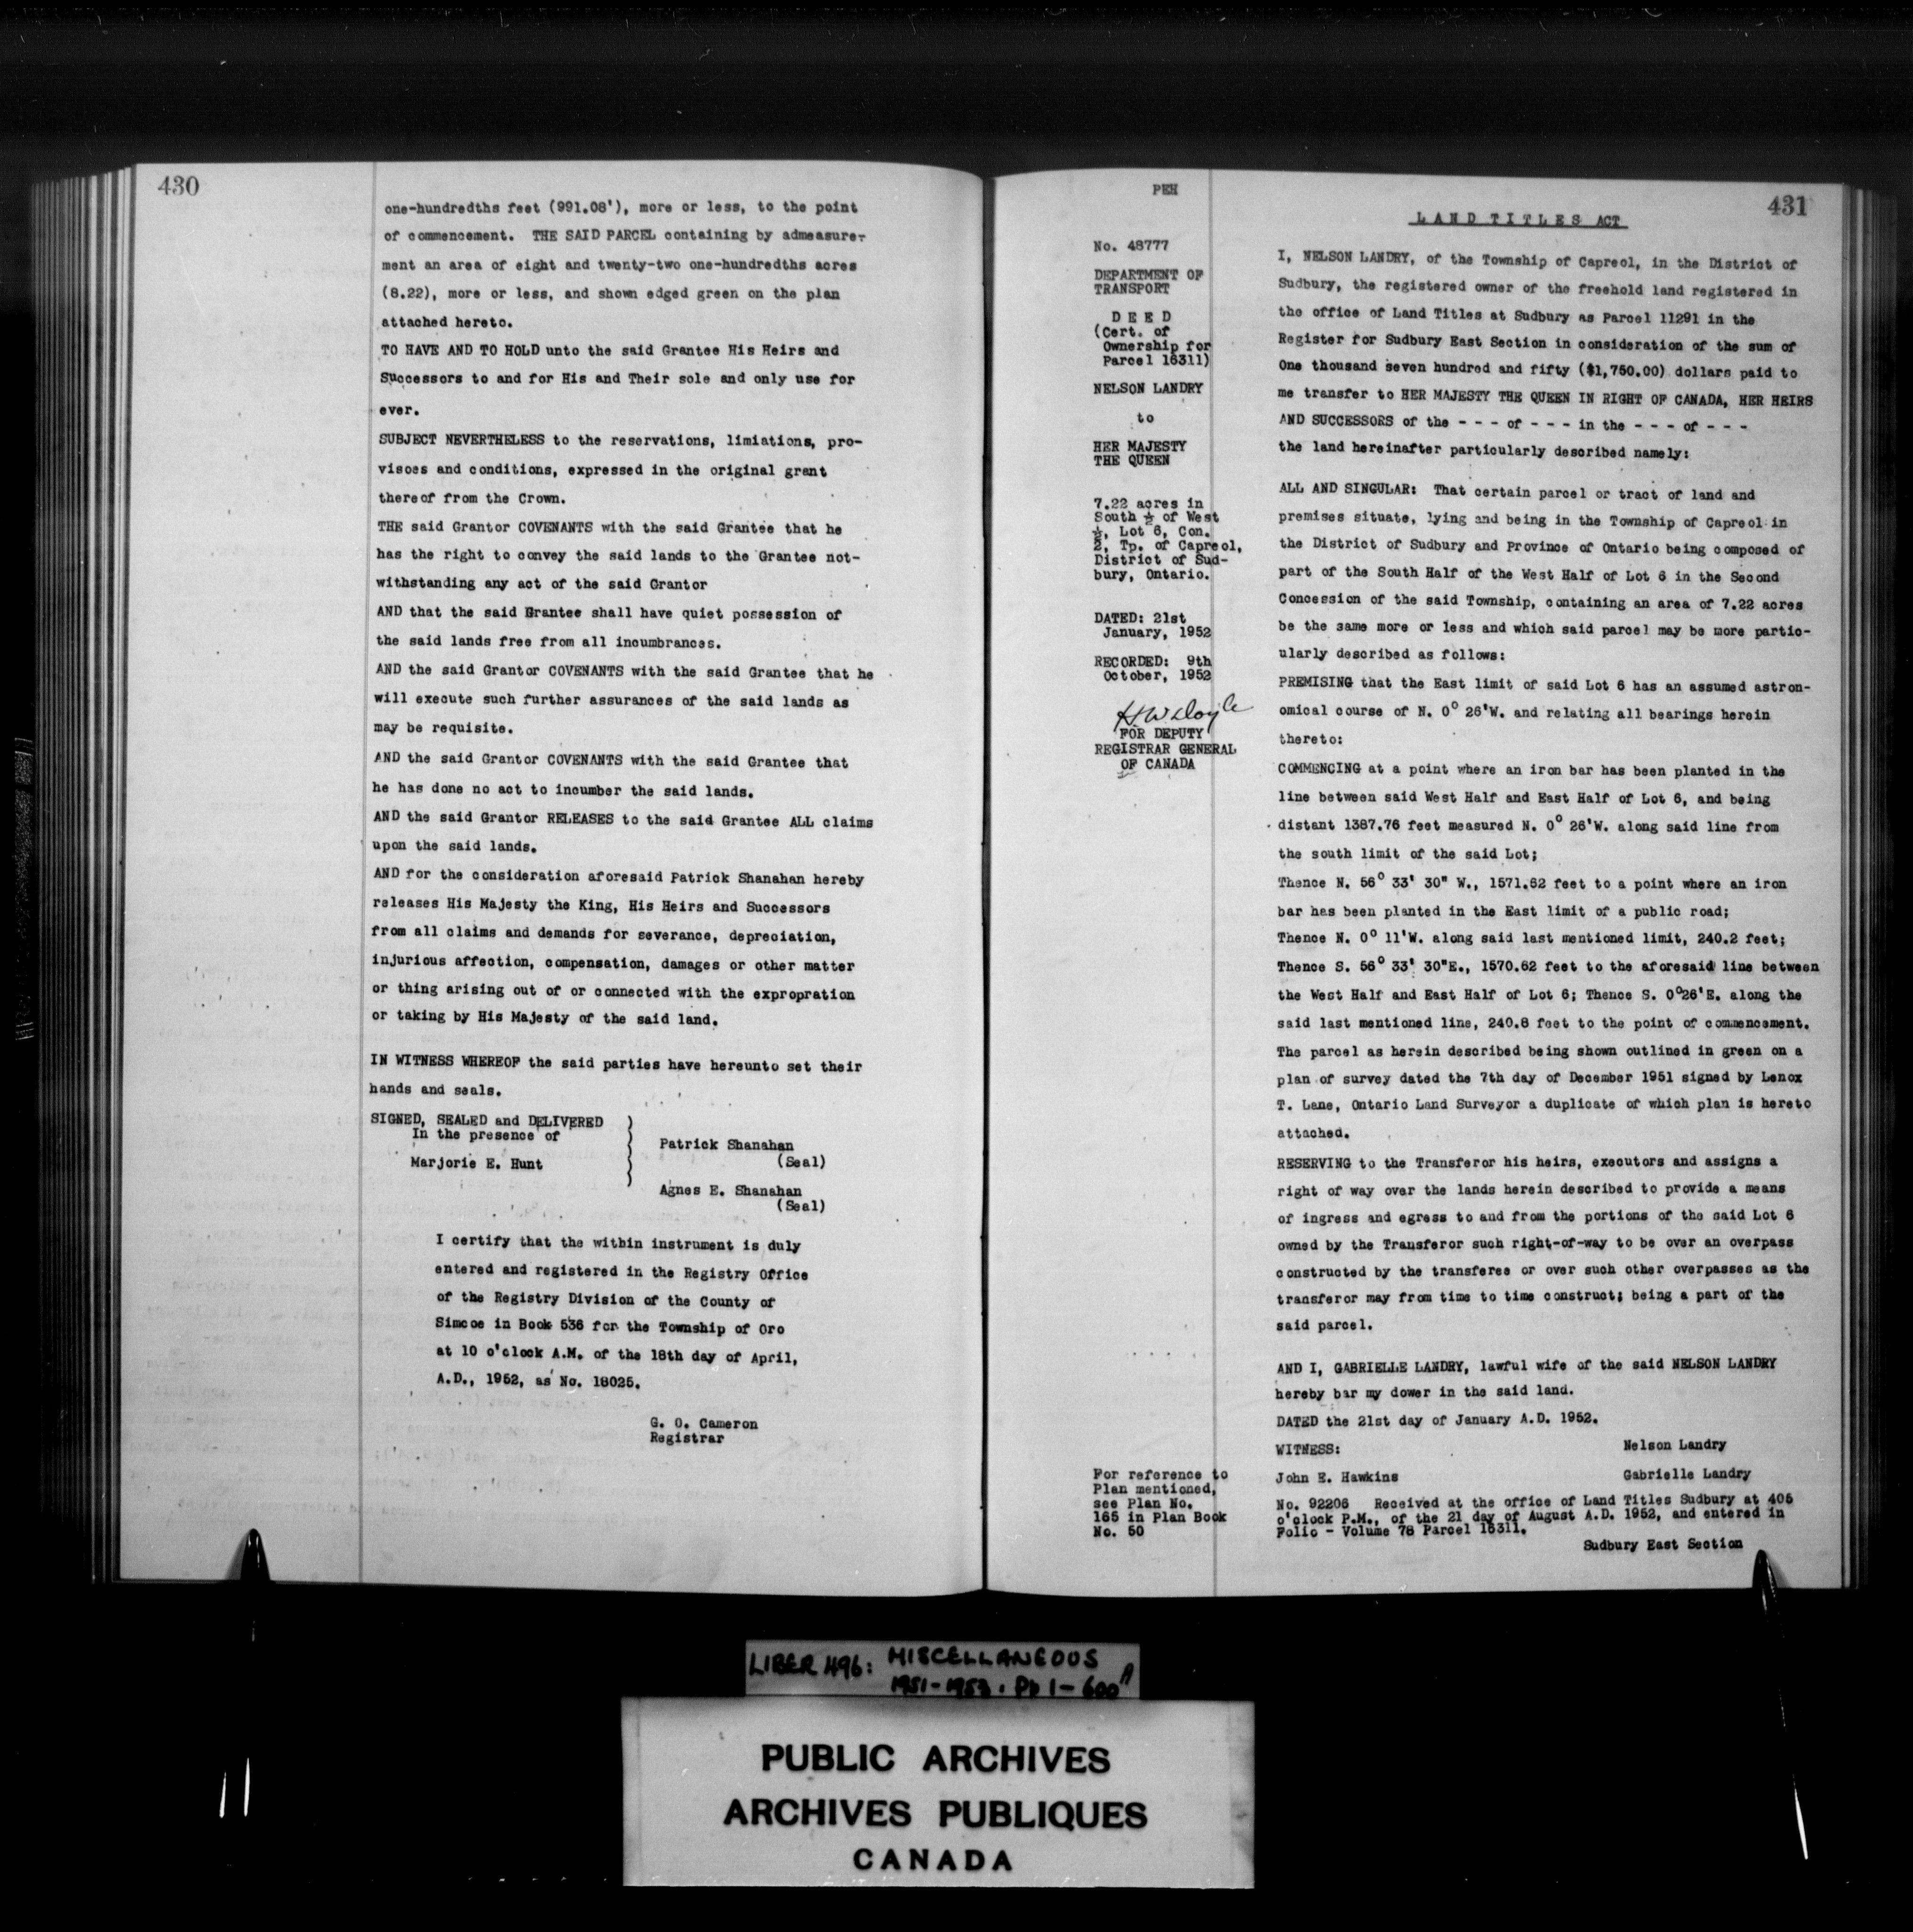 430
one-hundredths feet (991.08'), more or less, to the point
of commencement. THE SAID PARCEL containing by admeasure-
ment an area of eight and twenty-two one-hundredths acres
(8.22), more or less, and shown edged green on the plan
attached hereto.
TO HAVE AND TO HOLD unto the said Grantee His Heirs and
Successors to and for His and Their sole and only use for
ever.
SUBJECT NEVERTHELESS to the reservations, limiations, pro-
visoes and conditions, expressed in the original grant
thereof from the Crown.
THE said Grantor COVENANTS with the said Grantee that he
has the right to convey the said lands to the Grantee not-
withstanding any act of the said Grantor
AND that the said Grantee shall have quiet possession of
the said lands free from all incumbrances.
AND the said Grantor COVENANTS with the said Grantee that he
will execute such further assurances of the said lands as
may be requisite.
AND the said Grantor COVENANTS with the said Grantee that
he has done no act to incumber the said lands.
AND the said Grantor RELEASES to the said Grantee ALL claims
upon the said lands.
AND for the consideration aforesaid Patrick Shanahan hereby
releases His Majesty the King, His Heirs and Successors
from all claims and demands for severance, depreciation,
injurious affection, compensation, damages or other matter
or thing arising out of or connected with the expropration
or taking by His Majesty of the said land.
IN WITNESS WHEREOF the said parties have hereunto set their
hands and seals.
SIGNED, SEALED and DELIVERED
In the presence of
Marjorie E. Hunt
Patrick Shanahan
(Seal)
Agnes E. Shanahan
(Seal)
I certify that the within instrument is duly
entered and registered in the Registry Office
of the Registry Division of the County of
Simcoe in Book 536 for the Township of Oro
at 10 o'clock A.M. of the 18th day of April,
A.D., 1952, as No. 18025.
G. O. Cameron
Registrar
PEH
431
No. 48777
DEPARTMENT OF
TRANSPORT
D E E D
(Cert. of
Ownership for
Parcel 16311)
NELSON LANDRY
to
HER MAJESTY
THE QUEEN
7.22 acres in
South ½ of West
½, Lot 6, Con.
2, Tp. of Capreol,
District of Sud-
bury, Ontario.
DATED: 21st
January, 1952
RECORDED: 9th
October, 1952
HW Doyle
FOR DEPUTY
REGISTRAR GENERAL
OF CANADA
For reference to
Plan mentioned,
see Plan No.
165 in Plan Book
No. 50
L A N D T I T L E S ACT
I, NELSON LANDRY, of the Township of Capreol, in the District of
Sudbury, the registered owner of the freehold land registered in
the office of Land Titles at Sudbury as Parcel 11291 in the
Register for Sudbury East Section in consideration of the sum of
One thousand seven hundred and fifty ($1,750.00) dollars paid to
me transfer to HER MAJESTY THE QUEEN IN RIGHT OF CANADA, HER HEIRS
AND SUCCESSORS of the - - - of - - - in the - - - of - - -
the land hereinafter particularly described namely:
ALL AND SINGULAR: That certain parcel or tract of land and
premises situate, lying and being in the Township of Capreol in
the District of Sudbury and Province of Ontario being composed of
part of the South Half of the West Half of Lot 6 in the Second
Concession of the said Township, containing an area of 7.22 acres
be the same more or less and which said parcel may be more partic-
ularly described as follows:
PREMISING that the East limit of said Lot 6 has an assumed astron-
omical course of N. 0° 26'W. and relating all bearings herein
thereto:
COMMENCING at a point where an iron bar has been planted in the
line between said West Half and East Half of Lot 6, and being
distant 1387.76 feet measured N. 0° 26'W. along said line from
the south limit of the said Lot;
Thence N. 56° 33' 30" W., 1571.62 feet to a point where an iron
bar has been planted in the East limit of a public road;
Thence N. 0° 11'W. along said last mentioned limit, 240.2 feet;
Thence S. 56° 33' 30"E., 1570.62 feet to the aforesaid line between
the West Half and East Half of Lot 6; Thence S. 0°26'E. along the
said last mentioned line, 240.8 feet to the point of commencement.
The parcel as herein described being shown outlined in green on a
plan of survey dated the 7th day of December 1951 signed by Lenox
T. Lane, Ontario Land Surveyor a duplicate of which plan is hereto
attached.
RESERVING to the Transferor his heirs, executors and assigns a
right of way over the lands herein described to provide a means
of ingress and egress to and from the portions of the said Lot 6
owned by the Transferor such right-of-way to be over an overpass
constructed by the transferee or over such other overpasses as the
transferor may from time to time construct; being a part of the
said parcel.
AND I, GABRIELLE LANDRY, lawful wife of the said NELSON LANDRY
hereby bar my dower in the said land.
DATED the 21st day of January A.D. 1952.
WITNESS:
Nelson Landry
John E. Hawkins
Gabrielle Landry
No. 92206 Received at the office of Land Titles Sudbury at 405
o'clock P.M., of the 21 day of August A.D. 1952, and entered in
Folio - Volume 78 Parcel 16311.
Sudbury East Section
LIBER 496: MISCELLANEOUS
1951-1953. Pp 1-600A
PUBLIC ARCHIVES
ARCHIVES PUBLIQUES
CANADA